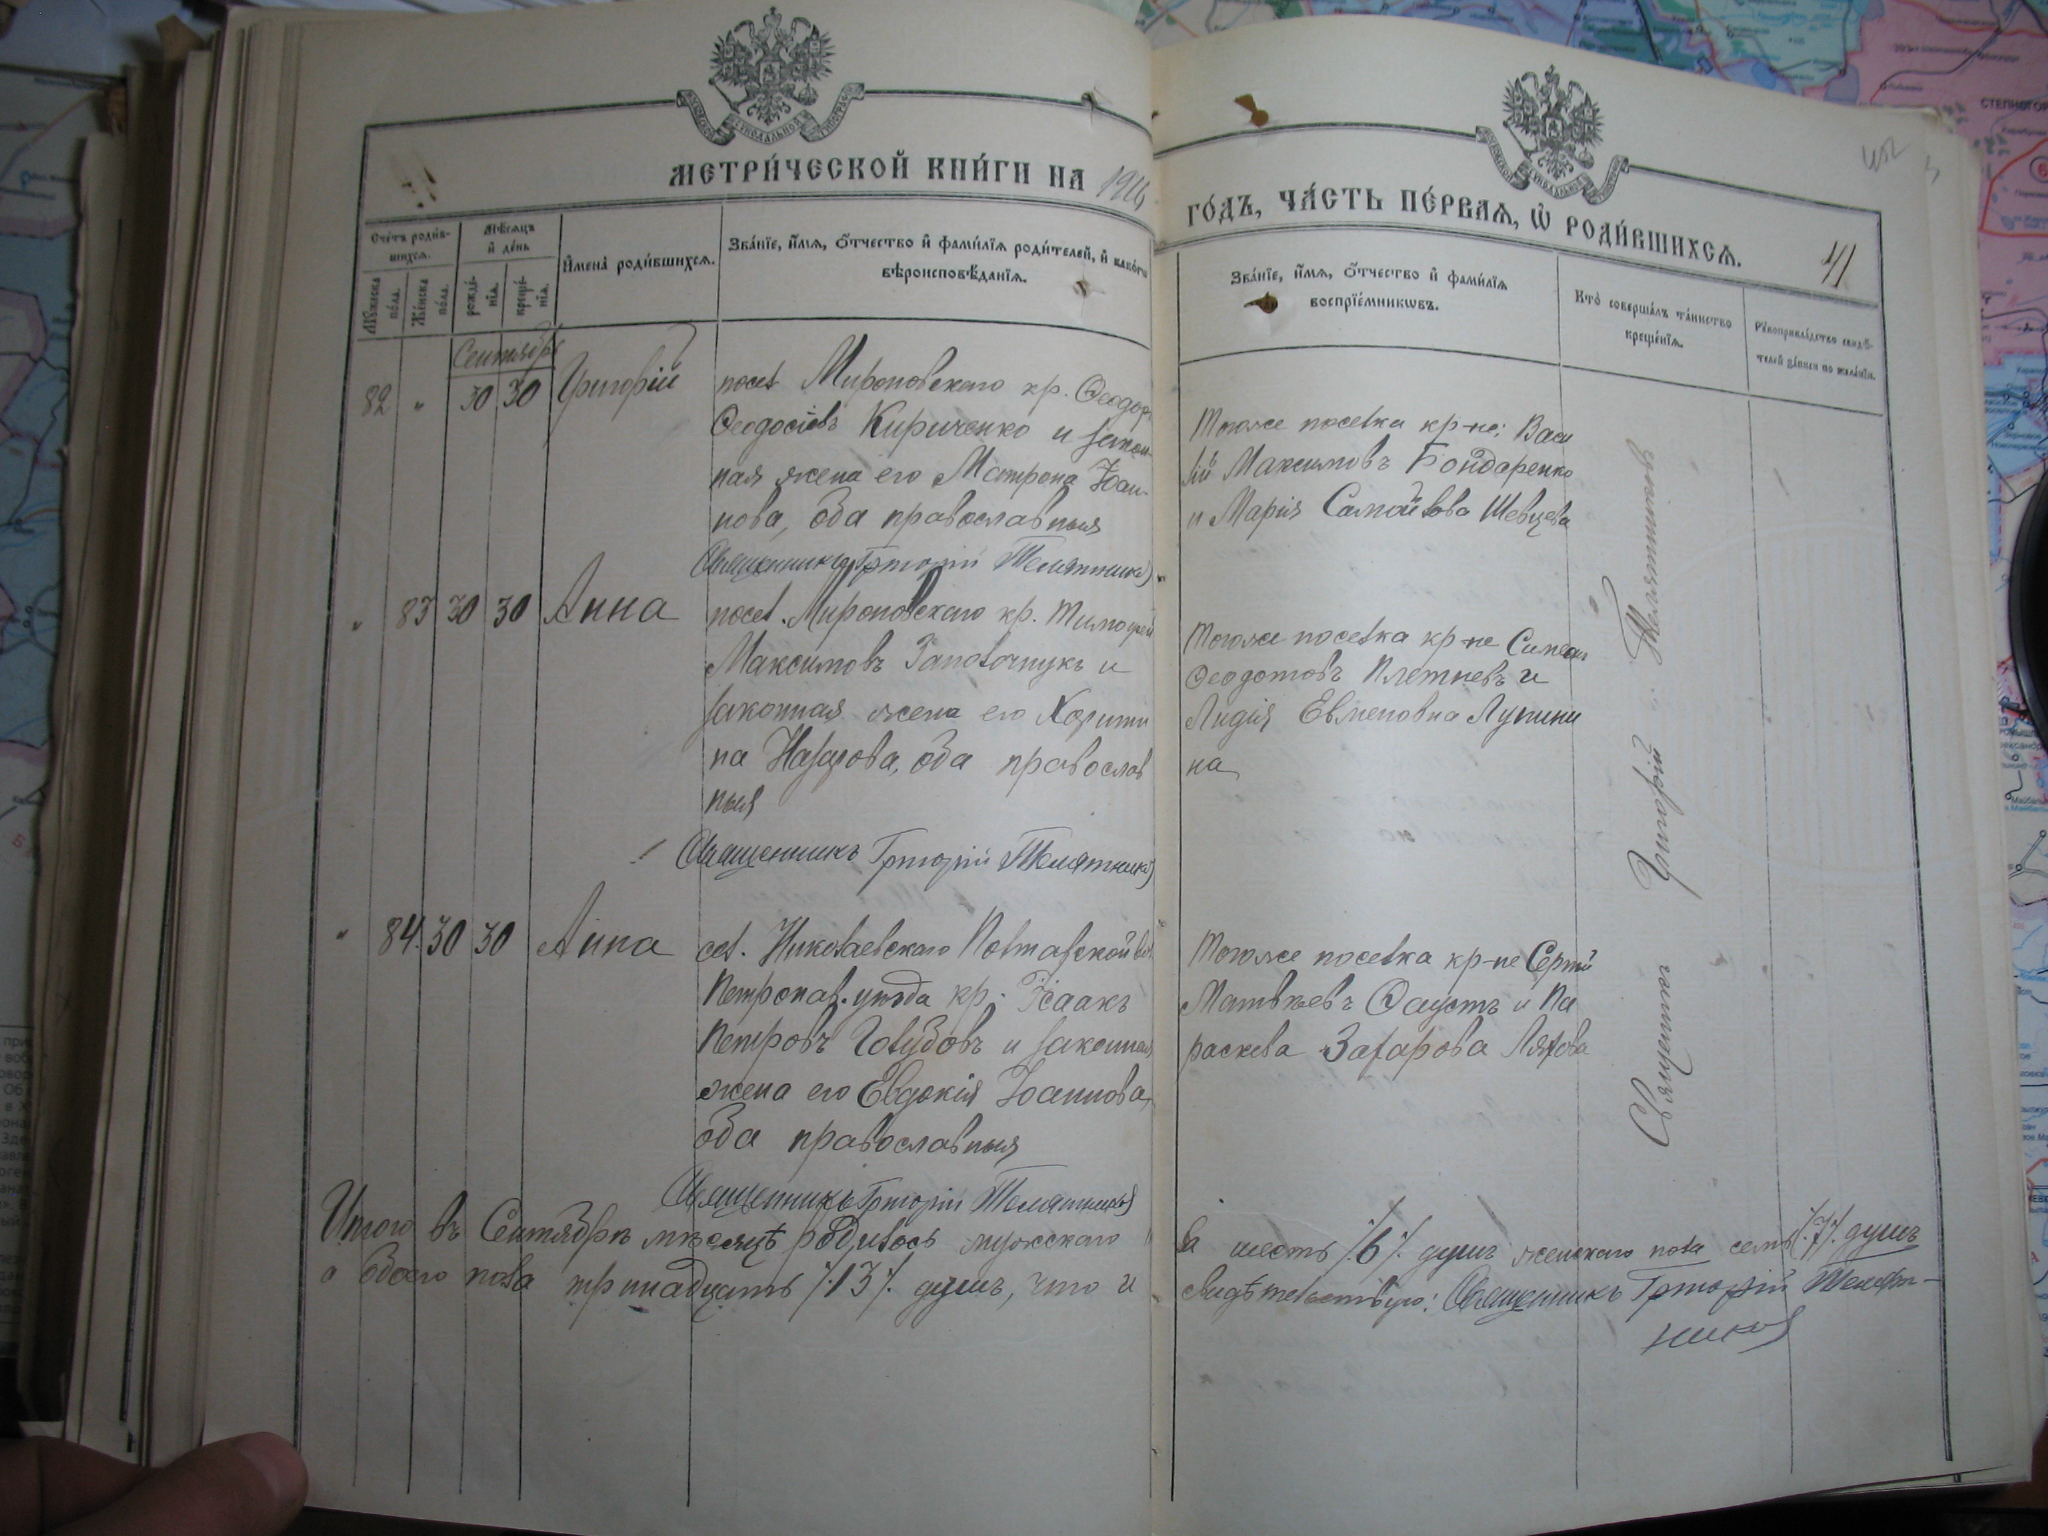 МЕТРИ́ЧЕСКОЙ КНИ́ГИ НА 1916
ГО́ДЪ, ЧА́СТЬ ПЕ́РВАѦ, Ѡ҆ РОДИ́ВШИХСѦ.
41
Сче́тъ роди́в-
шихсѧ.
Мѣ́сѧцъ
и҆ де́нь
И҆мена̀ роди́вшихсѧ.
Зва́нїе, и҆́мѧ, ѻ҆́тчество и҆ фами́лїѧ роди́телей, и҆ како́гѡ
вѣроисповѣ́данїѧ.
Мꙋ́жеска
по́ла.
Же́нска
по́ла.
рожде́-
нїѧ.
креще́-
нїѧ.
Зва́нїе, и҆́мѧ, ѻ҆́тчество и҆ фами́лїѧ
воспрїе́мникѡвъ.
Кто̀ соверша́лъ та́инство
креще́нїѧ.
Рꙋкоприкла́дство свидѣ́-
телей за́писи по жела́нїю.
Сентябрь
82 „ 30 30 Григорій
посел. Мироновскаго кр. Ѳеодоръ
Ѳеодосіевъ Кириченко и закон-
ная жена его Матрона Іоан-
нова, оба православныя
Священникъ Григорій Телятников
Тогоже поселка кр-не: Васи
лій Максимовъ Бондаренко
и Марія Самойлова Шевцева
„ 83 30 30 Анна
посел. Мироновскаго кр. Тимоѳей
Максимовъ Гаполочнукъ и
законная жена его Харити
на Назарова, оба православ
ныя
Священникъ Григорій Телятников
Тогоже поселка кр-не Симеон
Ѳеодотовъ Плетневъ и
Лидія Евменовна Лупини
на
„ 84 30 30 Анна
сел. Николаевскаго Полтавской вол.
Петропав. уѣзда кр. Ісаакъ
Петровъ Голубовъ и законная
жена его Евдокія Іоаннова,
оба православныя
Священникъ Григорій Телятников
Тогоже поселка кр-не Сергій
Матвѣевъ Фаустъ и Па
раскева Захарова Ляхова
Священникъ Григорій Телятников
Итого въ Сентябрѣ мѣсяцѣ родилось мужскаго п
ла шесть /.6/. душъ женскаго пола семь /.7/. душъ
а обоего пола тринадцать /.13/. душъ, что и
свидѣтельствую: Священникъ Григорій Телят-
ников